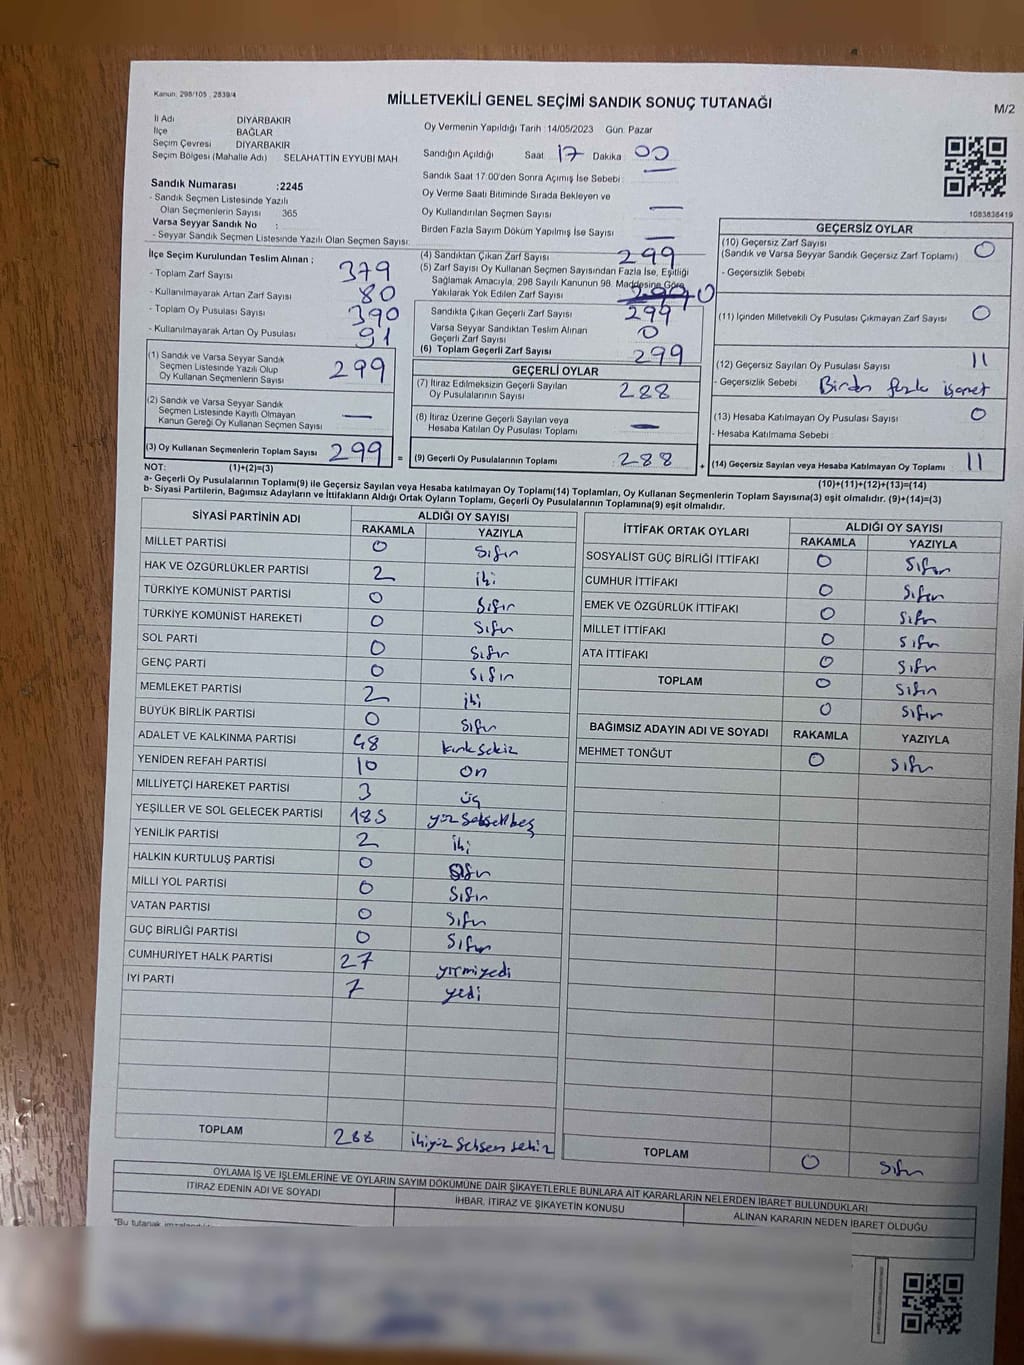 Kanun: 298/105 , 2839/4
MİLLETVEKİLİ GENEL SEÇİMİ SANDIK SONUÇ TUTANAĞI
M/2
İl Adı DİYARBAKIR
İlçe BAĞLAR
Seçim Çevresi DİYARBAKIR
Seçim Bölgesi (Mahalle Adı) SELAHATTİN EYYUBİ MAH
Sandık Numarası :2245
- Sandık Seçmen Listesinde Yazılı
Olan Seçmenlerin Sayısı 365
Varsa Seyyar Sandık No :
- Seyyar Sandık Seçmen Listesinde Yazılı Olan Seçmen Sayısı:
Oy Vermenin Yapıldığı Tarih :14/05/2023 Gün: Pazar
Sandığın Açıldığı Saat 17 Dakika 00
Sandık Saat 17:00'den Sonra Açımış İse Sebebi :
Oy Verme Saati Bitiminde Sırada Bekleyen ve
Oy Kullandırılan Seçmen Sayısı —
Birden Fazla Sayım Döküm Yapılmış İse Sayısı —
1083838419
İlçe Seçim Kurulundan Teslim Alınan ;
- Toplam Zarf Sayısı 379
- Kullanılmayarak Artan Zarf Sayısı 80
- Toplam Oy Pusulası Sayısı 390
- Kullanılmayarak Artan Oy Pusulası 91
(1) Sandık ve Varsa Seyyar Sandık
Seçmen Listesinde Yazılı Olup
Oy Kullanan Seçmenlerin Sayısı 299
(2) Sandık ve Varsa Seyyar Sandık
Seçmen Listesinde Kayıtlı Olmayan
Kanun Gereği Oy Kullanan Seçmen Sayısı —
(3) Oy Kullanan Seçmenlerin Toplam Sayısı 299 =
(4) Sandıktan Çıkan Zarf Sayısı 299
(5) Zarf Sayısı Oy Kullanan Seçmen Sayısından Fazla İse, Eşitliği
Sağlamak Amacıyla, 298 Sayılı Kanunun 98. Maddesine Göre
Yakılarak Yok Edilen Zarf Sayısı 0
Sandıkta Çıkan Geçerli Zarf Sayısı 299
Varsa Seyyar Sandıktan Teslim Alınan
Geçerli Zarf Sayısı 0
(6) Toplam Geçerli Zarf Sayısı 299
GEÇERLİ OYLAR
(7) İtiraz Edilmeksizin Geçerli Sayılan
Oy Pusulalarının Sayısı 288
(8) İtiraz Üzerine Geçerli Sayılan veya
Hesaba Katılan Oy Pusulası Toplamı —
(9) Geçerli Oy Pusulalarının Toplamı 288 +
GEÇERSİZ OYLAR
(10) Geçersiz Zarf Sayısı 0
(Sandık ve Varsa Seyyar Sandık Geçersiz Zarf Toplamı)
- Geçersizlik Sebebi
(11) İçinden Milletvekili Oy Pusulası Çıkmayan Zarf Sayısı 0
(12) Geçersiz Sayılan Oy Pusulası Sayısı 11
- Geçersizlik Sebebi Birden fazla işaret
(13) Hesaba Katılmayan Oy Pusulası Sayısı 0
- Hesaba Katılmama Sebebi
(14) Geçersiz Sayılan veya Hesaba Katılmayan Oy Toplamı 11
NOT: (1)+(2)=(3) (10)+(11)+(12)+(13)=(14)
a- Geçerli Oy Pusulalarının Toplamı(9) ile Geçersiz Sayılan veya Hesaba katılmayan Oy Toplamı(14) Toplamları, Oy Kullanan Seçmenlerin Toplam Sayısına(3) eşit olmalıdır. (9)+(14)=(3)
b- Siyasi Partilerin, Bağımsız Adayların ve İttifakların Aldığı Ortak Oyların Toplamı, Geçerli Oy Pusulalarının Toplamına(9) eşit olmalıdır.
SİYASİ PARTİNİN ADI ALDIĞI OY SAYISI
RAKAMLA YAZIYLA
MİLLET PARTİSİ 0 Sıfır
HAK VE ÖZGÜRLÜKLER PARTİSİ 2 iki
TÜRKİYE KOMÜNİST PARTİSİ 0 Sıfır
TÜRKİYE KOMÜNİST HAREKETİ 0 Sıfır
SOL PARTİ 0 Sıfır
GENÇ PARTİ 0 Sıfır
MEMLEKET PARTİSİ 2 iki
BÜYÜK BİRLİK PARTİSİ 0 Sıfır
ADALET VE KALKINMA PARTİSİ 48 kırksekiz
YENİDEN REFAH PARTİSİ 10 on
MİLLİYETÇİ HAREKET PARTİSİ 3 üç
YEŞİLLER VE SOL GELECEK PARTİSİ 185 yüz seksen beş
YENİLİK PARTİSİ 2 iki
HALKIN KURTULUŞ PARTİSİ 0 Sıfır
MİLLİ YOL PARTİSİ 0 Sıfır
VATAN PARTİSİ 0 Sıfır
GÜÇ BİRLİĞİ PARTİSİ 0 Sıfır
CUMHURİYET HALK PARTİSİ 27 yirmiyedi
İYİ PARTİ 7 yedi
TOPLAM 288 ikiyüz seksen sekiz
İTTİFAK ORTAK OYLARI ALDIĞI OY SAYISI
RAKAMLA YAZIYLA
SOSYALİST GÜÇ BİRLİĞİ İTTİFAKI 0 Sıfır
CUMHUR İTTİFAKI 0 Sıfır
EMEK VE ÖZGÜRLÜK İTTİFAKI 0 Sıfır
MİLLET İTTİFAKI 0 Sıfır
ATA İTTİFAKI 0 Sıfır
TOPLAM 0 Sıfır
0 Sıfır
BAĞIMSIZ ADAYIN ADI VE SOYADI RAKAMLA YAZIYLA
MEHMET TONĞUT 0 Sıfır
TOPLAM 0 Sıfır
OYLAMA İŞ VE İŞLEMLERİNE VE OYLARIN SAYIM DÖKÜMÜNE DAİR ŞİKAYETLERLE BUNLARA AİT KARARLARIN NELERDEN İBARET BULUNDUKLARI
İTİRAZ EDENİN ADI VE SOYADI İHBAR, İTİRAZ VE ŞİKAYETİN KONUSU ALINAN KARARIN NEDEN İBARET OLDUĞU
"Bu tutanak